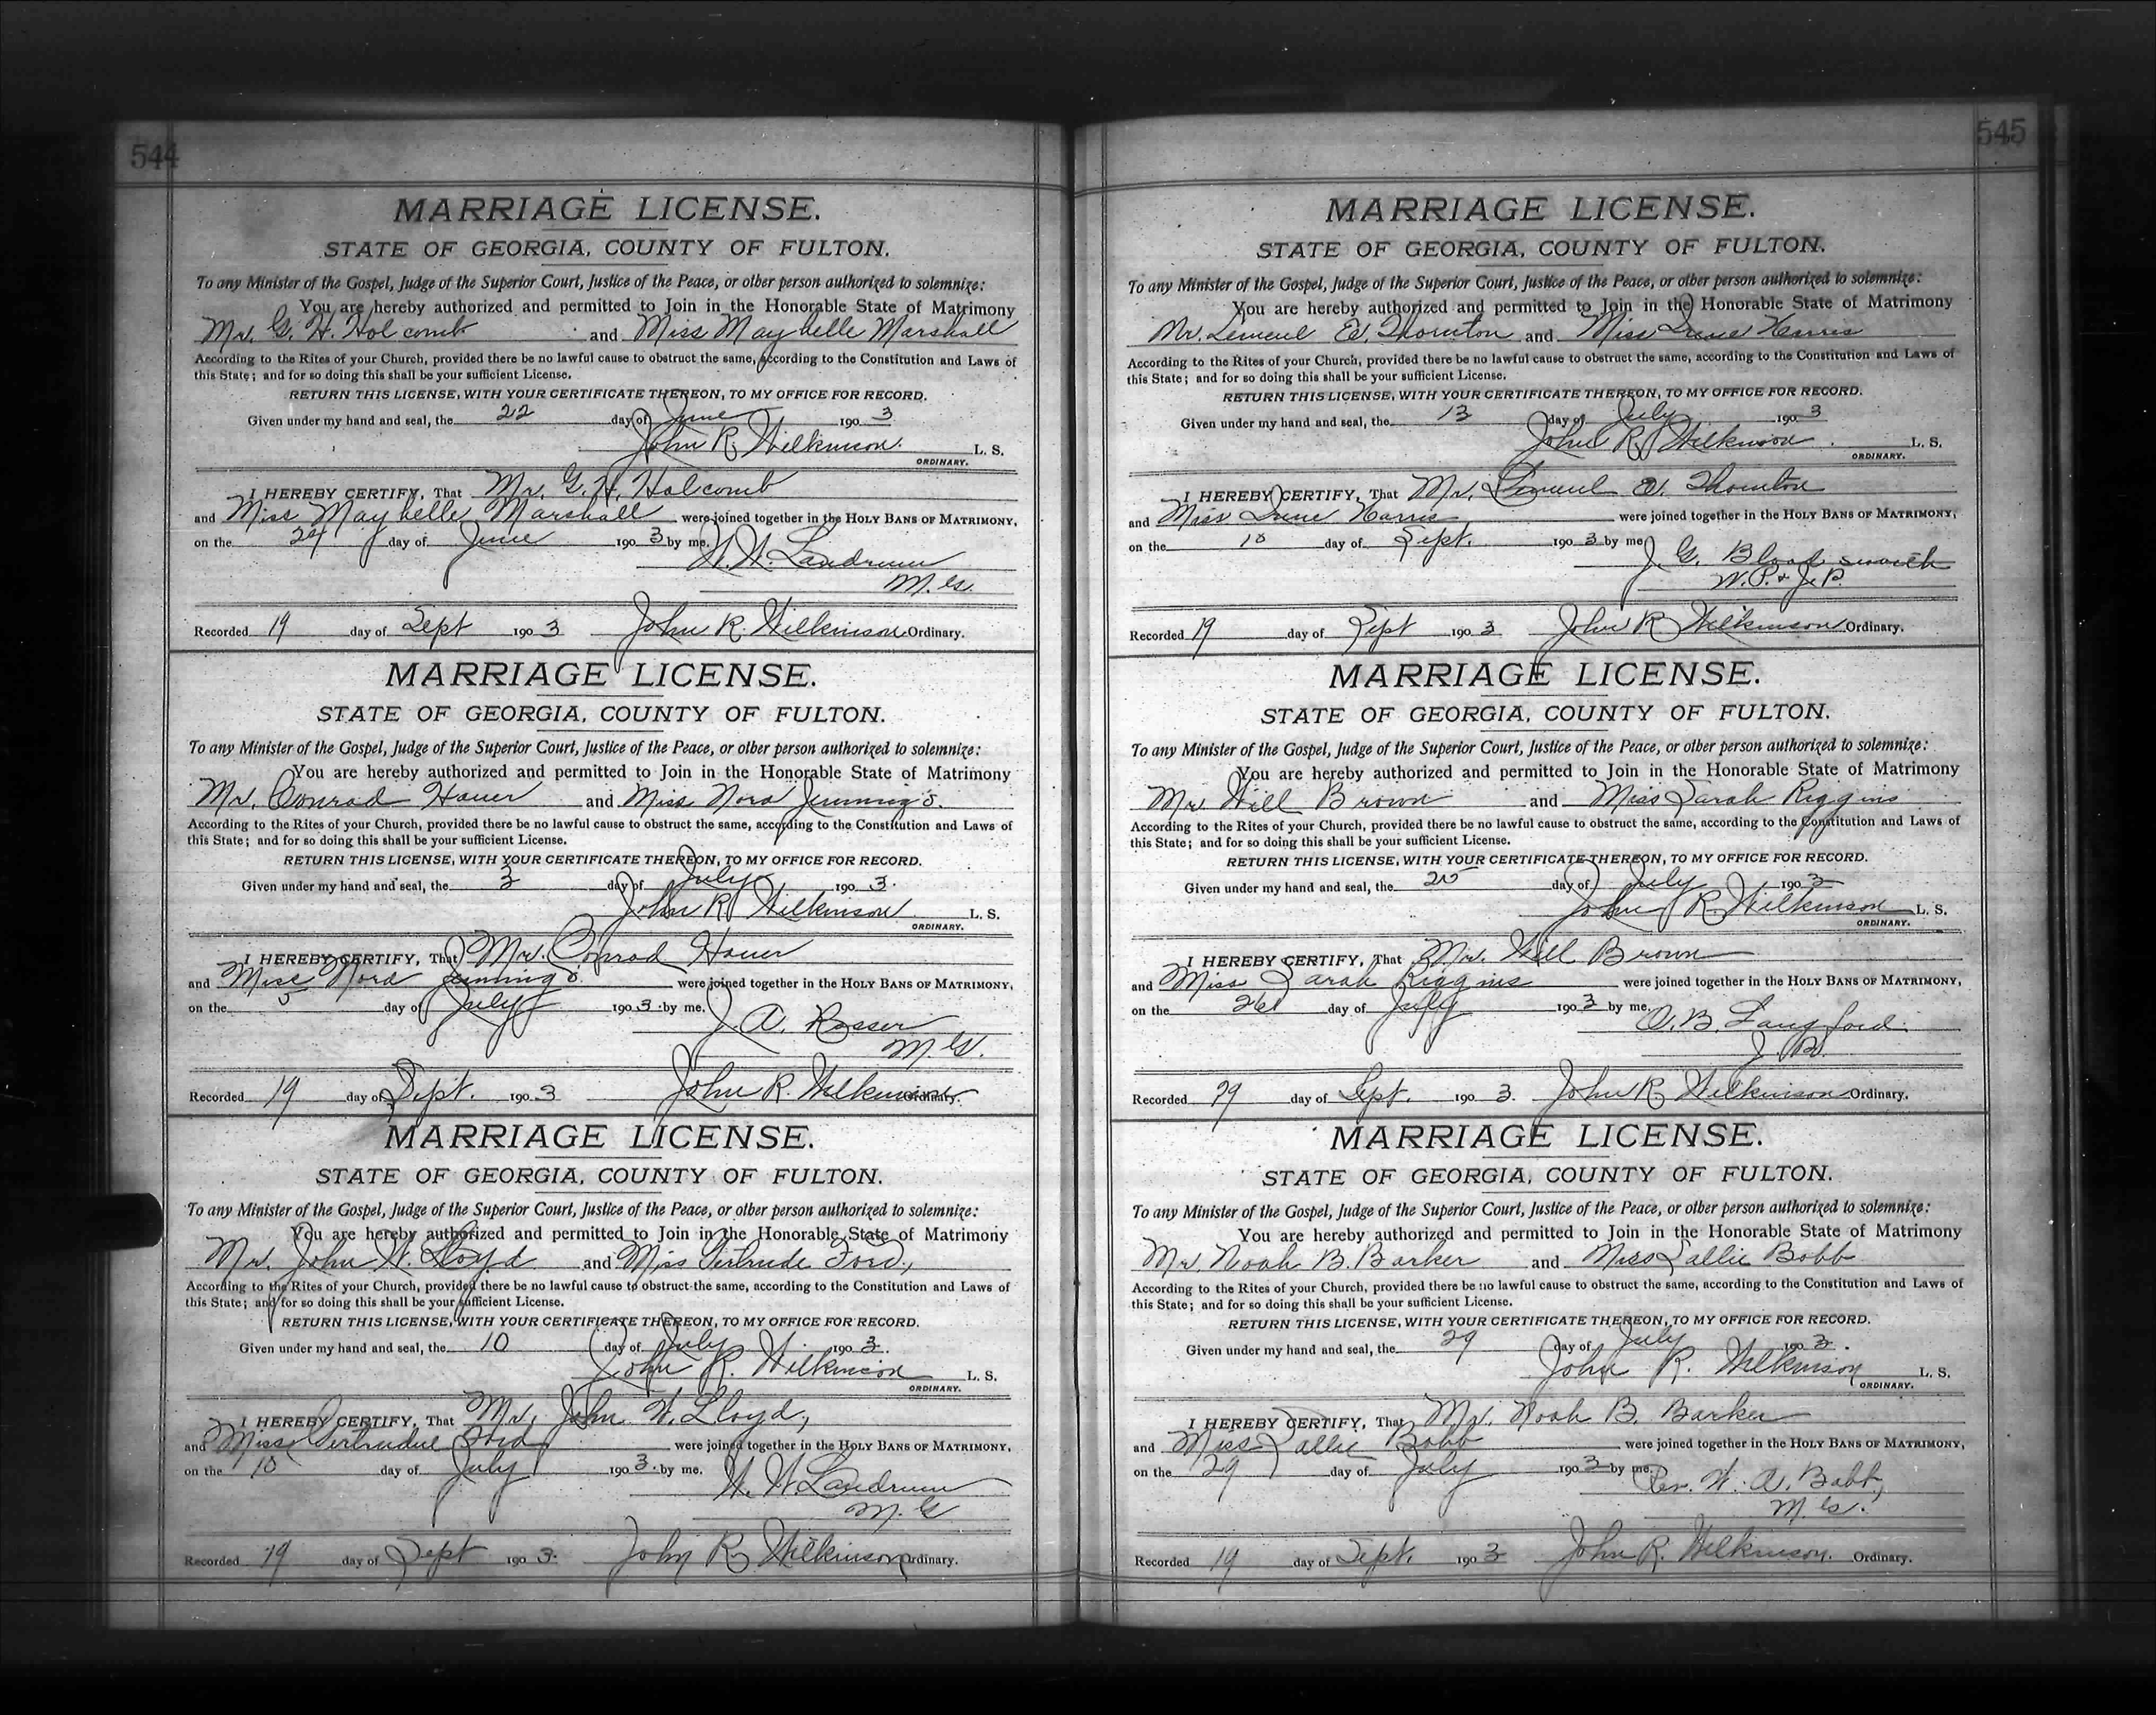 544
MARRIAGE LICENSE.
STATE OF GEORGIA, COUNTY OF FULTON.
To any Minister of the Gospel, Judge of the Superior Court, Justice of the Peace, or other person authorized to solemnize:
You are hereby authorized and permitted to Join in the Honorable State of Matrimony
Mr. G. H. Holcomb and Miss Maybelle Marshall
According to the Rites of your Church, provided there be no lawful cause to obstruct the same, according to the Constitution and Laws of
this State; and for so doing this shall be your sufficient License.
RETURN THIS LICENSE, WITH YOUR CERTIFICATE THEREON, TO MY OFFICE FOR RECORD.
Given under my hand and seal, the 22 day of June 1903
John R. Wilkinson. L. S.
ORDINARY.
I HEREBY CERTIFY, That Mr. G. H. Holcomb
and Miss Maybelle Marshall were joined together in the HOLY BANS OF MATRIMONY,
on the 24 day of June 1903 by me.
W. W. Landrum
M. G.
Recorded 19 day of Sept 1903 John R. Wilkinson Ordinary.
MARRIAGE LICENSE.
STATE OF GEORGIA, COUNTY OF FULTON.
To any Minister of the Gospel, Judge of the Superior Court, Justice of the Peace, or other person authorized to solemnize:
You are hereby authorized and permitted to Join in the Honorable State of Matrimony
Mr. Conrad Hauer and Miss Nora Jennings.
According to the Rites of your Church, provided there be no lawful cause to obstruct the same, according to the Constitution and Laws of
this State; and for so doing this shall be your sufficient License.
RETURN THIS LICENSE, WITH YOUR CERTIFICATE THEREON, TO MY OFFICE FOR RECORD.
Given under my hand and seal, the 3 day of July 1903.
John R. Wilkinson L. S.
ORDINARY.
I HEREBY CERTIFY, That Mr. Conrad Hauer
and Miss Nora Jennings. were joined together in the HOLY BANS OF MATRIMONY,
on the 5 day of July 1903 by me.
J. A. Rosser
M. G.
Recorded 19 day of Sept. 1903 John R. Wilkinson Ordinary.
MARRIAGE LICENSE.
STATE OF GEORGIA, COUNTY OF FULTON.
To any Minister of the Gospel, Judge of the Superior Court, Justice of the Peace, or other person authorized to solemnize:
You are hereby authorized and permitted to Join in the Honorable State of Matrimony
Mr. John W. Lloyd and Miss Gertrude Ford,
According to the Rites of your Church, provided there be no lawful cause to obstruct the same, according to the Constitution and Laws of
this State; and for so doing this shall be your sufficient License.
RETURN THIS LICENSE, WITH YOUR CERTIFICATE THEREON, TO MY OFFICE FOR RECORD.
Given under my hand and seal, the 10 day of July 1903.
John R. Wilkinson L. S.
ORDINARY.
I HEREBY CERTIFY, That Mr. John W. Lloyd,
and Miss Gertrudue Ford were joined together in the HOLY BANS OF MATRIMONY,
on the 10 day of July 1903. by me.
W. W. Landrum
M. G
Recorded 19 day of Sept 1903. John R. Wilkinson Ordinary.
545
MARRIAGE LICENSE.
STATE OF GEORGIA, COUNTY OF FULTON.
To any Minister of the Gospel, Judge of the Superior Court, Justice of the Peace, or other person authorized to solemnize:
You are hereby authorized and permitted to Join in the Honorable State of Matrimony
Mr. Lemeul E. Thornton and Miss Irene Harris
According to the Rites of your Church, provided there be no lawful cause to obstruct the same, according to the Constitution and Laws of
this State; and for so doing this shall be your sufficient License.
RETURN THIS LICENSE, WITH YOUR CERTIFICATE THEREON, TO MY OFFICE FOR RECORD.
Given under my hand and seal, the 13 day of July 1903
John R. Wilkinson. L. S.
ORDINARY.
I HEREBY CERTIFY, That Mr. Lemuel E. Thornton
and Miss Irene Harris were joined together in the HOLY BANS OF MATRIMONY,
on the day of Sept. 1903 by me
J. G. Bloodsworth
N. P. & J. P.
Recorded 19 day of Sept 1903 John R Wilkinson Ordinary.
MARRIAGE LICENSE.
STATE OF GEORGIA, COUNTY OF FULTON.
To any Minister of the Gospel, Judge of the Superior Court, Justice of the Peace, or other person authorized to solemnize:
You are hereby authorized and permitted to Join in the Honorable State of Matrimony
Mr Will Brown and Miss Sarah Riggins
According to the Rites of your Church, provided there be no lawful cause to obstruct the same, according to the Constitution and Laws of
this State; and for so doing this shall be your sufficient License.
RETURN THIS LICENSE, WITH YOUR CERTIFICATE THEREON, TO MY OFFICE FOR RECORD.
Given under my hand and seal, the 25 day of July 1903
John R. Wilkinson L. S.
ORDINARY.
I HEREBY CERTIFY, That Mr. Will Brown
and Miss Sarah Riggins were joined together in the HOLY BANS OF MATRIMONY,
on the 26 day of July 1903 by me.
O. B. Langford.
J. P.
Recorded 19 day of Sept. 1903. John R Wilkinson Ordinary.
MARRIAGE LICENSE.
STATE OF GEORGIA, COUNTY OF FULTON.
To any Minister of the Gospel, Judge of the Superior Court, Justice of the Peace, or other person authorized to solemnize:
You are hereby authorized and permitted to Join in the Honorable State of Matrimony
Mr. Noah B. Barker and Miss Sallie Bobb
According to the Rites of your Church, provided there be no lawful cause to obstruct the same, according to the Constitution and Laws of
this State; and for so doing this shall be your sufficient License.
RETURN THIS LICENSE, WITH YOUR CERTIFICATE THEREON, TO MY OFFICE FOR RECORD.
Given under my hand and seal, the 29 day of July 1903.
John R. Wilkinson L. S.
ORDINARY.
I HEREBY CERTIFY, That Mr. Noah B. Barker
and Miss Sallie Bobb were joined together in the HOLY BANS OF MATRIMONY,
on the 29 day of July 1903 by me.
Rev. W. A. Babb,
M. G.
Recorded 19 day of Sept. 1903 John R. Wilkinson. Ordinary.